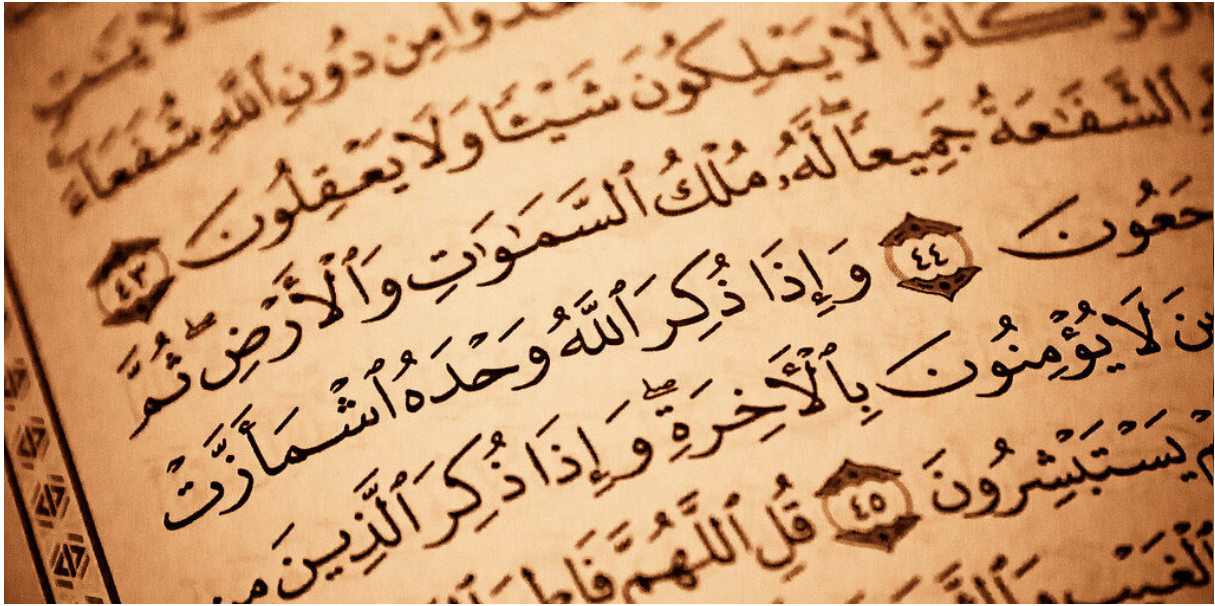 مِن دُونِ ٱللَّهِ شُفَعَآءَ
كَانُوا۟ لَا يَمْلِكُونَ شَيْـًٔا وَلَا يَعْقِلُونَ ٤٣
ٱلشَّفَـٰعَةُ جَمِيعًا ۖ لَّهُۥ مُلْكُ ٱلسَّمَـٰوَٰتِ وَٱلْأَرْضِ ۖ ثُمَّ
جَعُونَ ٤٤ وَإِذَا ذُكِرَ ٱللَّهُ وَحْدَهُ ٱشْمَأَزَّتْ
ينَ لَا يُؤْمِنُونَ بِٱلْأَخِرَةِ ۖ وَإِذَا ذُكِرَ ٱلَّذِينَ مِن
مْ يَسْتَبْشِرُونَ ٤٥ قُلِ ٱللَّهُمَّ فَاطِرَ
ٱلْغَيْبِ